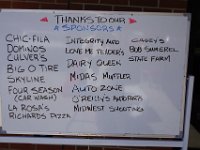 THANKS TO OUR
SPONSORS
CHIC-FILA
DOMINOS
CULVER'S
BIG O TIRE
SKYLINE
FOUR SEASON
(CAR WASH)
LA ROSA'S
RICHARDS PIZZA
INTEGRITY AUTO
LOVE ME TENDER'S
DAIRY QUEEN
MIDAS MUFFLER
AUTO ZONE
O'REILLYS AUTO PARTS
MIDWEST SHOOTING
CASEY'S
BOB
STATE FARM